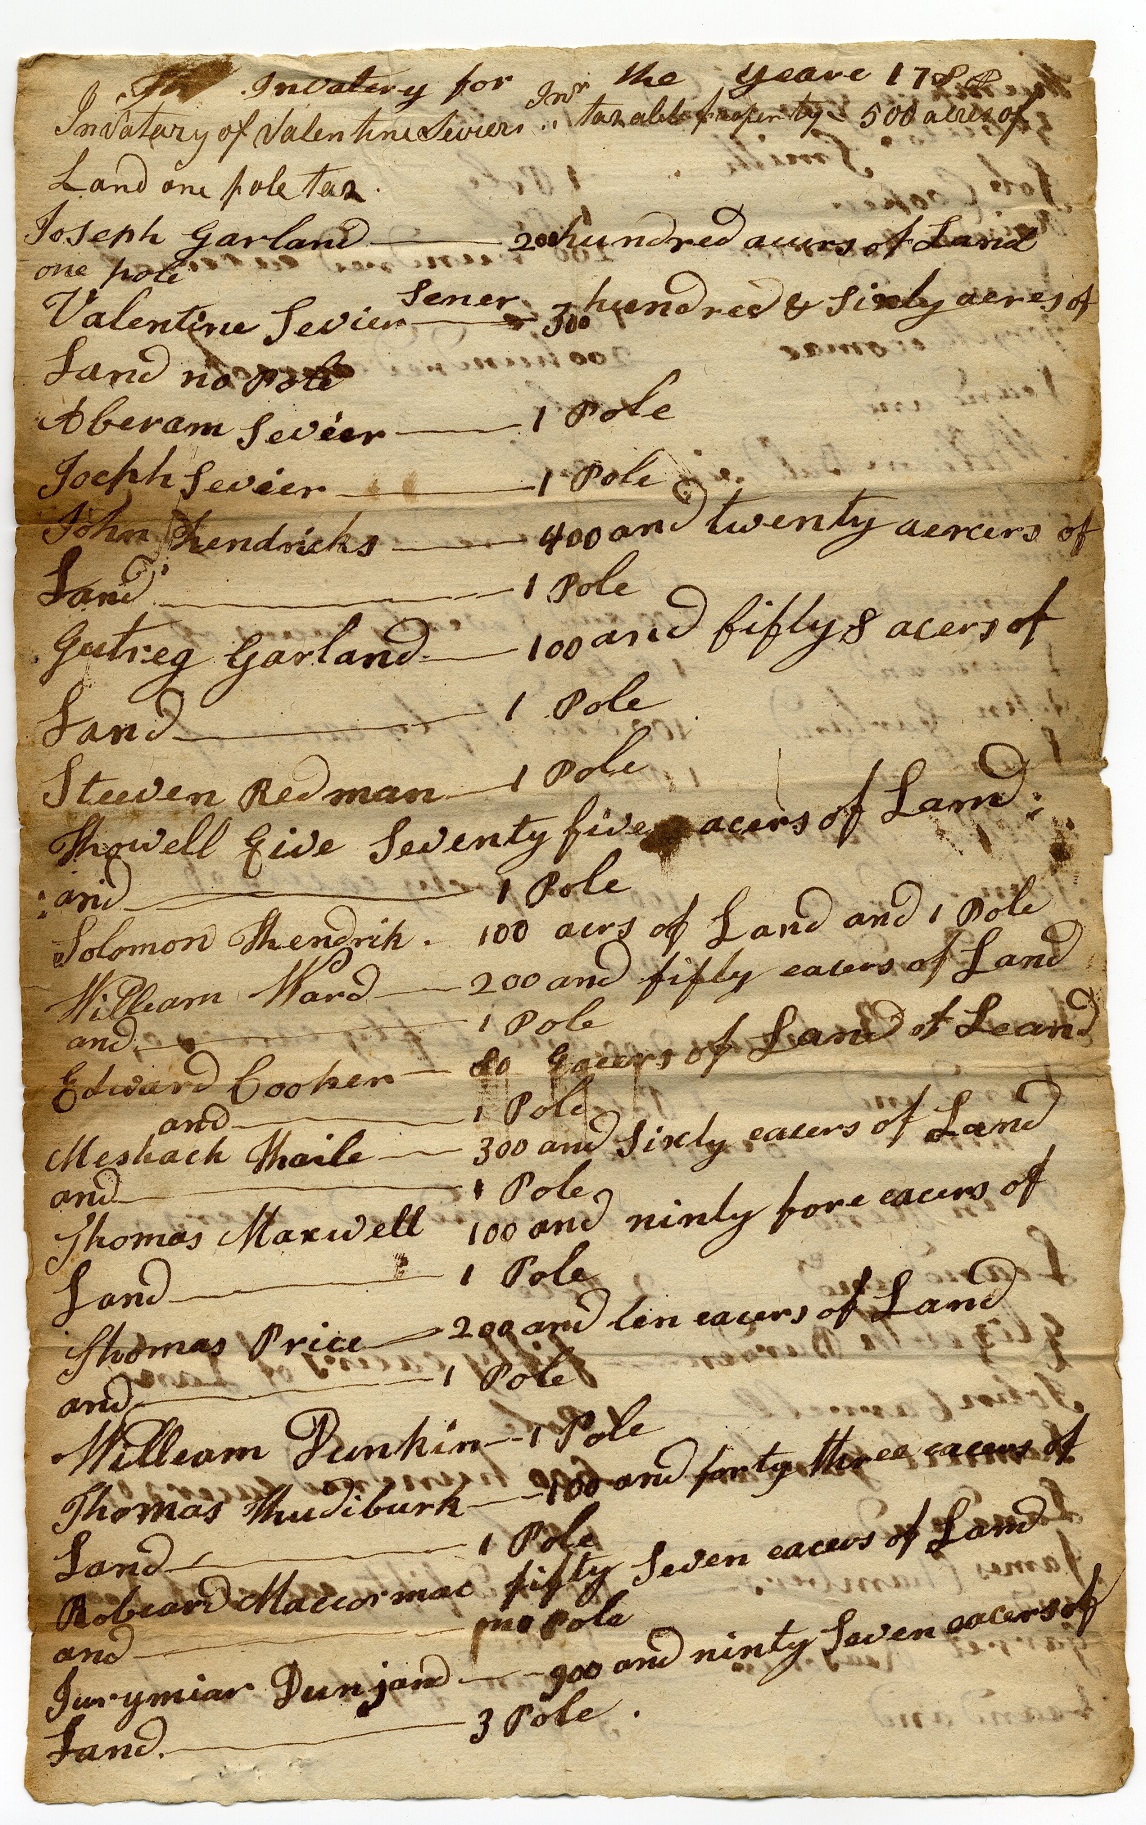 The Invatory for the yeare 17
Invatary of Valentine Sevier Jnr taxable properity 500 acres of
Land one pole tax
Joseph Garland 200 hundred acurs of Land
one pole
Valentine Sevier Sener 300 hundred & Sixly acres of
Land no Pole
Aberam Sevier 1 Pole
Joeph Sevier 1 Pole
John Hendricks 400 and twenty aercers of
Land 1 Pole
Gutreg Garland 100 and fifty 8 acers of
Land 1 Pole
Steeven Redman 1 Pole
Howell Give Seventy five acers of Land
and 1 Pole
Solomon Hendrik 100 acrs of Land and 1 Pole
Willeam Ward 200 and fifty eacers of Land
and 1 Pole
Edward Cooper 80 Eacers of Land of Leand
and 1 Pole
Meshack Haile 300 and Sixly eacers of Land
and 1 Pole
Thomas Maxwell 100 and ninly fore eacers of
Land 1 Pole
Thomas Price 200 and ten eacers of Land
and 1 Pole
Willeam Dunkin 1 Pole
Thomas Hudiburk 100 and forty three eacers of
Land 1 Pole
Robeard Maccormac fifty Seven eacers of Land
and no Pole
Jurymiar Dunjand 900 and ninty Seven eacers of
Land 3 Pole